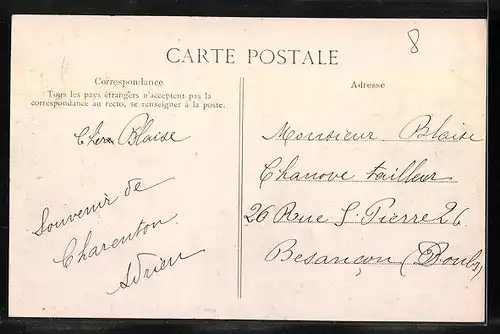 8
CARTE POSTALE
Correspondance
Tous les pays étrangers n'acceptent pas la
correspondance au recto, se renseigner à la poste.
Cher Blaise
Souvenir de
Charenton
Adrien
Adresse
Monsieur Blaise
Chanove tailleur
26 Rue S. Pierre 26
Besançon (Doubs)